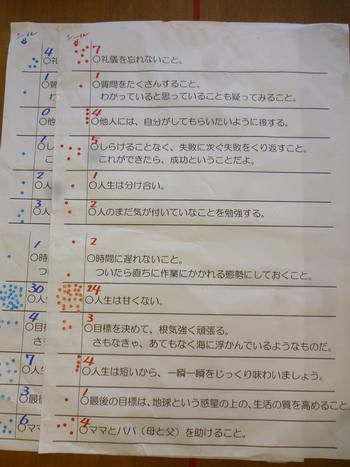 シール
シール
4
○礼
7
○礼儀を忘れないこと。
1
○質
わ
1
○質問をたくさんすること。
わかっていると思っていることも疑ってみること。
0
○他
4
○他人には、自分がしてもらいたいように接する。
1
○しら
これ
5
○しらけることなく、失敗に次ぐ失敗をくり返すこと。
これができたら、成功ということだよ。
2
○人
1
○人生は分け合い。
3
○人
2
○人のまだ気が付いていなことを勉強する。
1
○時
つい
2
○時間に遅れないこと。
ついたら直ちに作業にかかれる態勢にしておくこと。
30
○人
24
○人生は甘くない。
4
○目標
さも
3
○目標を決めて、根気強く頑張る。
さもなきゃ、あてもなく海に浮かんでいるようなものだ。
7
○人生
4
○人生は短いから、一瞬一瞬をじっくり味わいましょう。
3
○最後
1
○最後の目標は、地球という惑星の上の、生活の質を高めること
6
○ママ
4
○ママとパパ（母と父）を助けること。